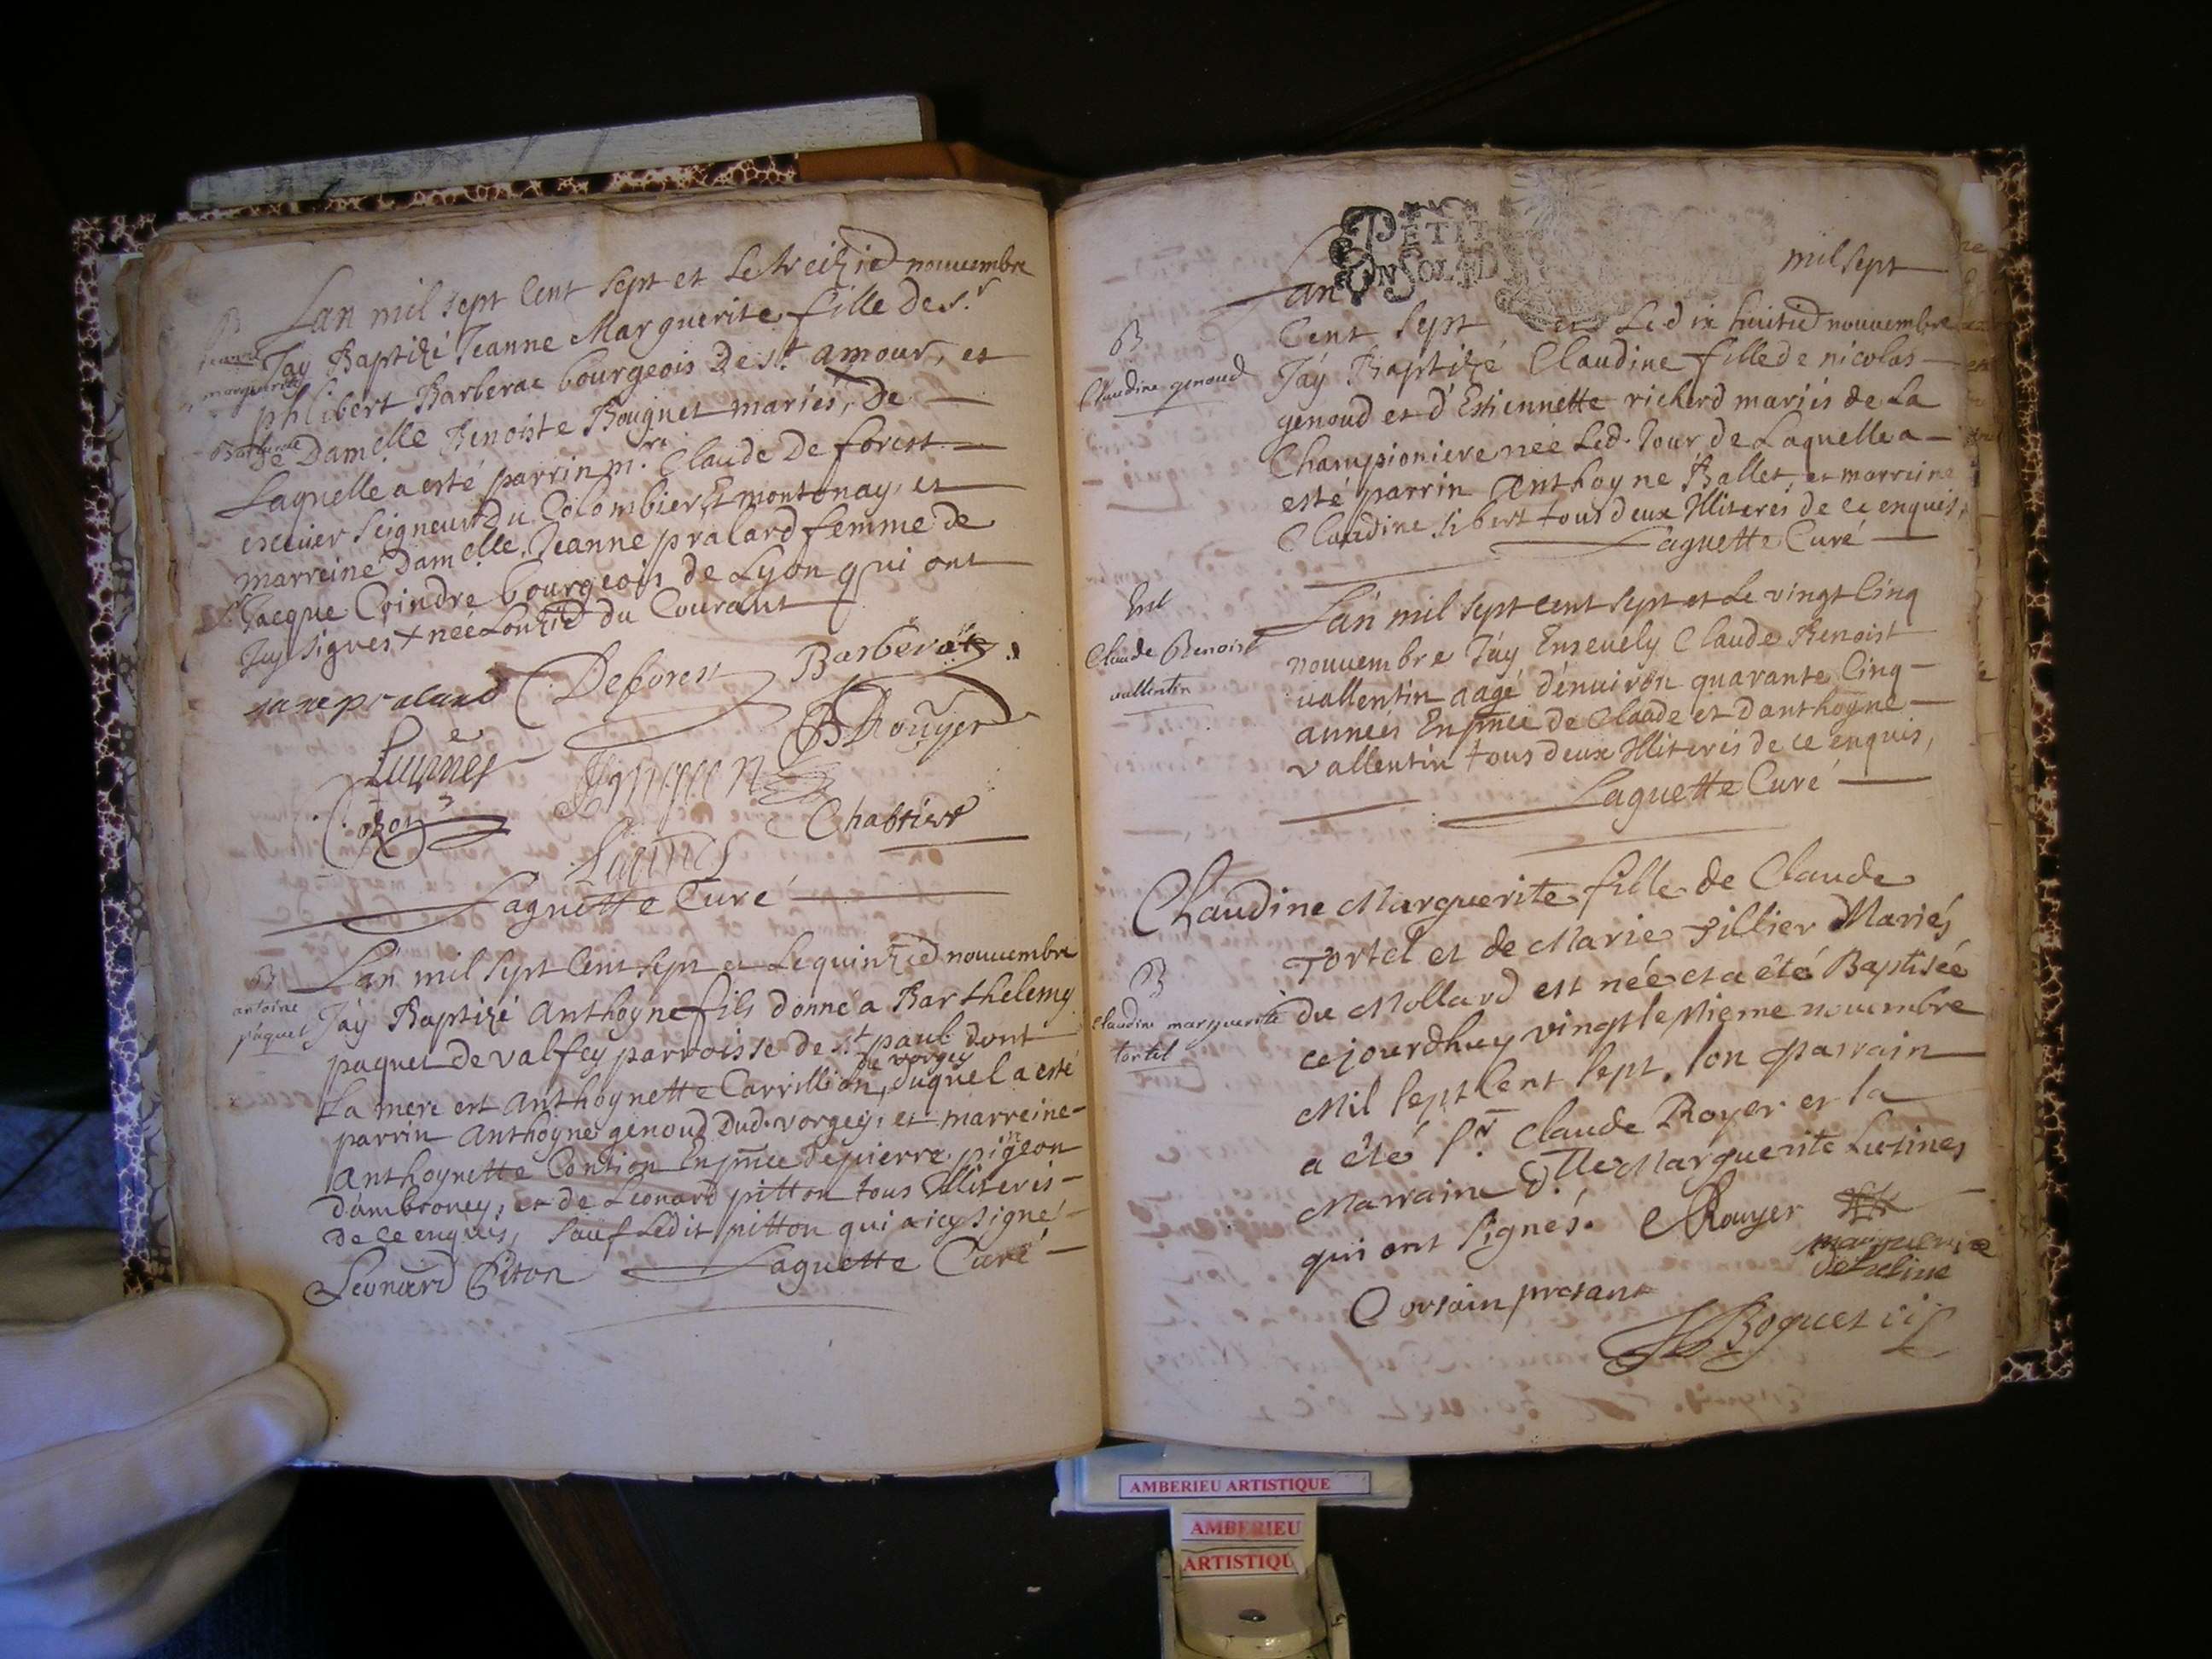 Lan mil sept Cent sept et Le treiziè nouuembre
B
Jeanne
marguerite
Jay Baptizé Jeanne Marguerite fille de s.r
phlibert Barberat bourgeois De st. amour, et
de Damelle Benoiste Bouguet mariés, De
Laquelle a esté parrin m.re Claude De forest
escuier seigneur Du Colombier, Et montonay, et
marreine Damelle. Jeanne pralard femme de
Jacque Coindre bourgeois de Lyon qui ont
Icy signes + née Lonziè du Courant
Deforest Barberat
B Rouyer
Chabrier
Laguette Curé
B
antoine
paquet
Lan mil sept Cent sept et Le quinziè nouuembre
Jáy Baptizé Anthoyne fils donné a Barthelemy
paquet de valfey parroisse de st. paul dont
de vorgey
La mere est Anthoynette Carrillion, duquel a esté
parrin Anthoyne genoud Dud. vorgey, et marreine
Anthoynette Contion En pnce de pierre pigeon
dámbroney, et de Leonard pitton tous Illiterés
de ce enquis, sauf Ledit pitton qui a icy signé
Leonard Piton Laguette Curé
PETIT
Lan mil sept
B
Claudine genoud
Cent sept et Le dix huitiè nouuembre
Jáy Baptizé Claudine fille de nicolas
genoud et d'Estiennette richerd mariés de La
Championiere née Led. Jour, de Laquelle a
esté parrin Anthoyne Ballet, et marreine
Claudine sibert tous deux Illiterés de ce enquis,
Laguette Curé
Ent
Claude Benoist
vallentin
Lán mil sept cent sept et Le vingt Cinq
nouuembre Jáy Enseuely Claude Benoist
vallentin aagé dénuiron quarante Cinq
années En pnce de Claude et danthoyne
vallentin tous deux Illiterés de ce enquis,
Laguette Curé
Claudine Marguerite fille de Claude
Tortel et de Marie Tillier Mariés
B
Claudine marguerite
tortel
du Mollard est née et a été Baptisée
cejourdhuy vingt septieme nouembre
Mil sept Cent sept. son parrain
a été Sr. Claude Royer et la
Marraine D.lle Marguerite Lusines
qui ont signés. C Rouyer
marguerite
deluline
Corsain presant
Boguet
AMBERIEU ARTISTIQUE
AMBERIEU
ARTISTIQU